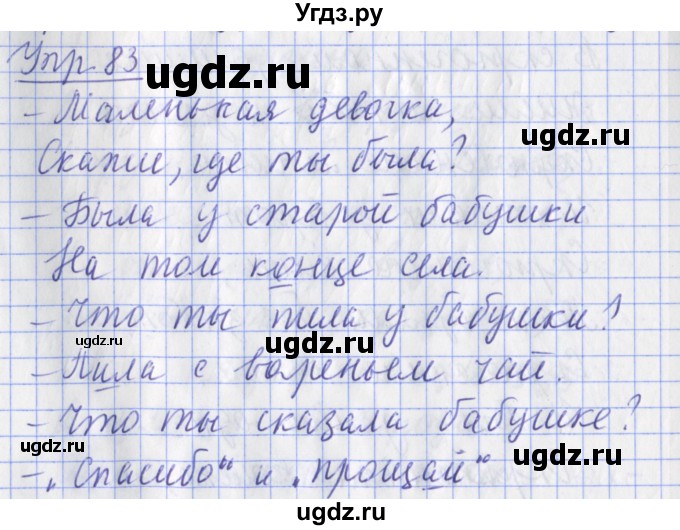 Угдз.ру
Упр 83
ugdz.ru
- Маленькая девочка,
ugdz.ru
Скажи, где ты была?
- Была у старой бабушки
ugdz.ru
На том конце села.
- Что ты пила у бабушки?
ugdz.ru
ugdz.ru
- Пила с вареньем чай.
- Что ты сказала бабушке?
ugdz.ru
ugdz.ru
- „Спасибо“ и „прощай“
ugdz.ru
Угдз.ру